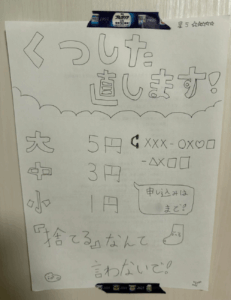 くつした
直します!
大 5円
中 3円
小 1円
XXX-OX♡□
-△X□□
申し込みは
まで!
『捨てる』なんて
言わないで!